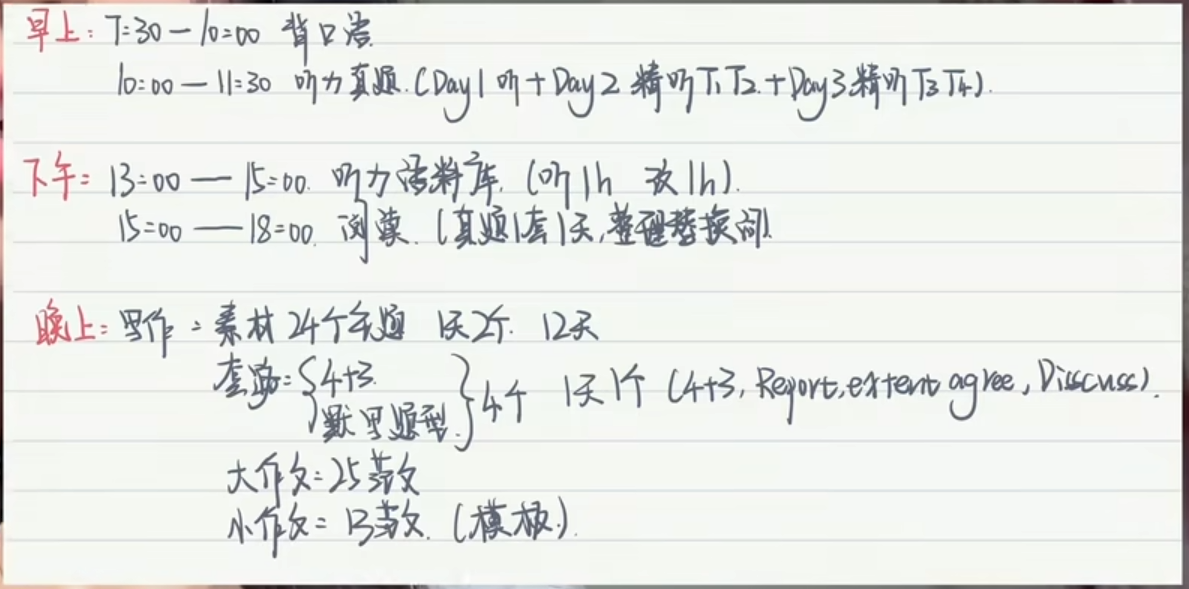 早上: 7:30 — 10:00 背口语
10:00 — 11:30 听力真题. (Day1 听 + Day2 精听 T1 T2. + Day3 精听 T3 T4).
下午: 13:00 — 15:00. 听力语料库. (听1h 改1h).
15:00 — 18:00. 阅读. (真题1套1天, 整理替换词)
晚上: 写作: 素材 24个话题 1天2个. 12天
套路: { 4+3. 默写题型. } 4个 1天1个 (4+3, Report, extent agree, Disscuss).
大作文: 25范文
小作文: 13范文. (模板).